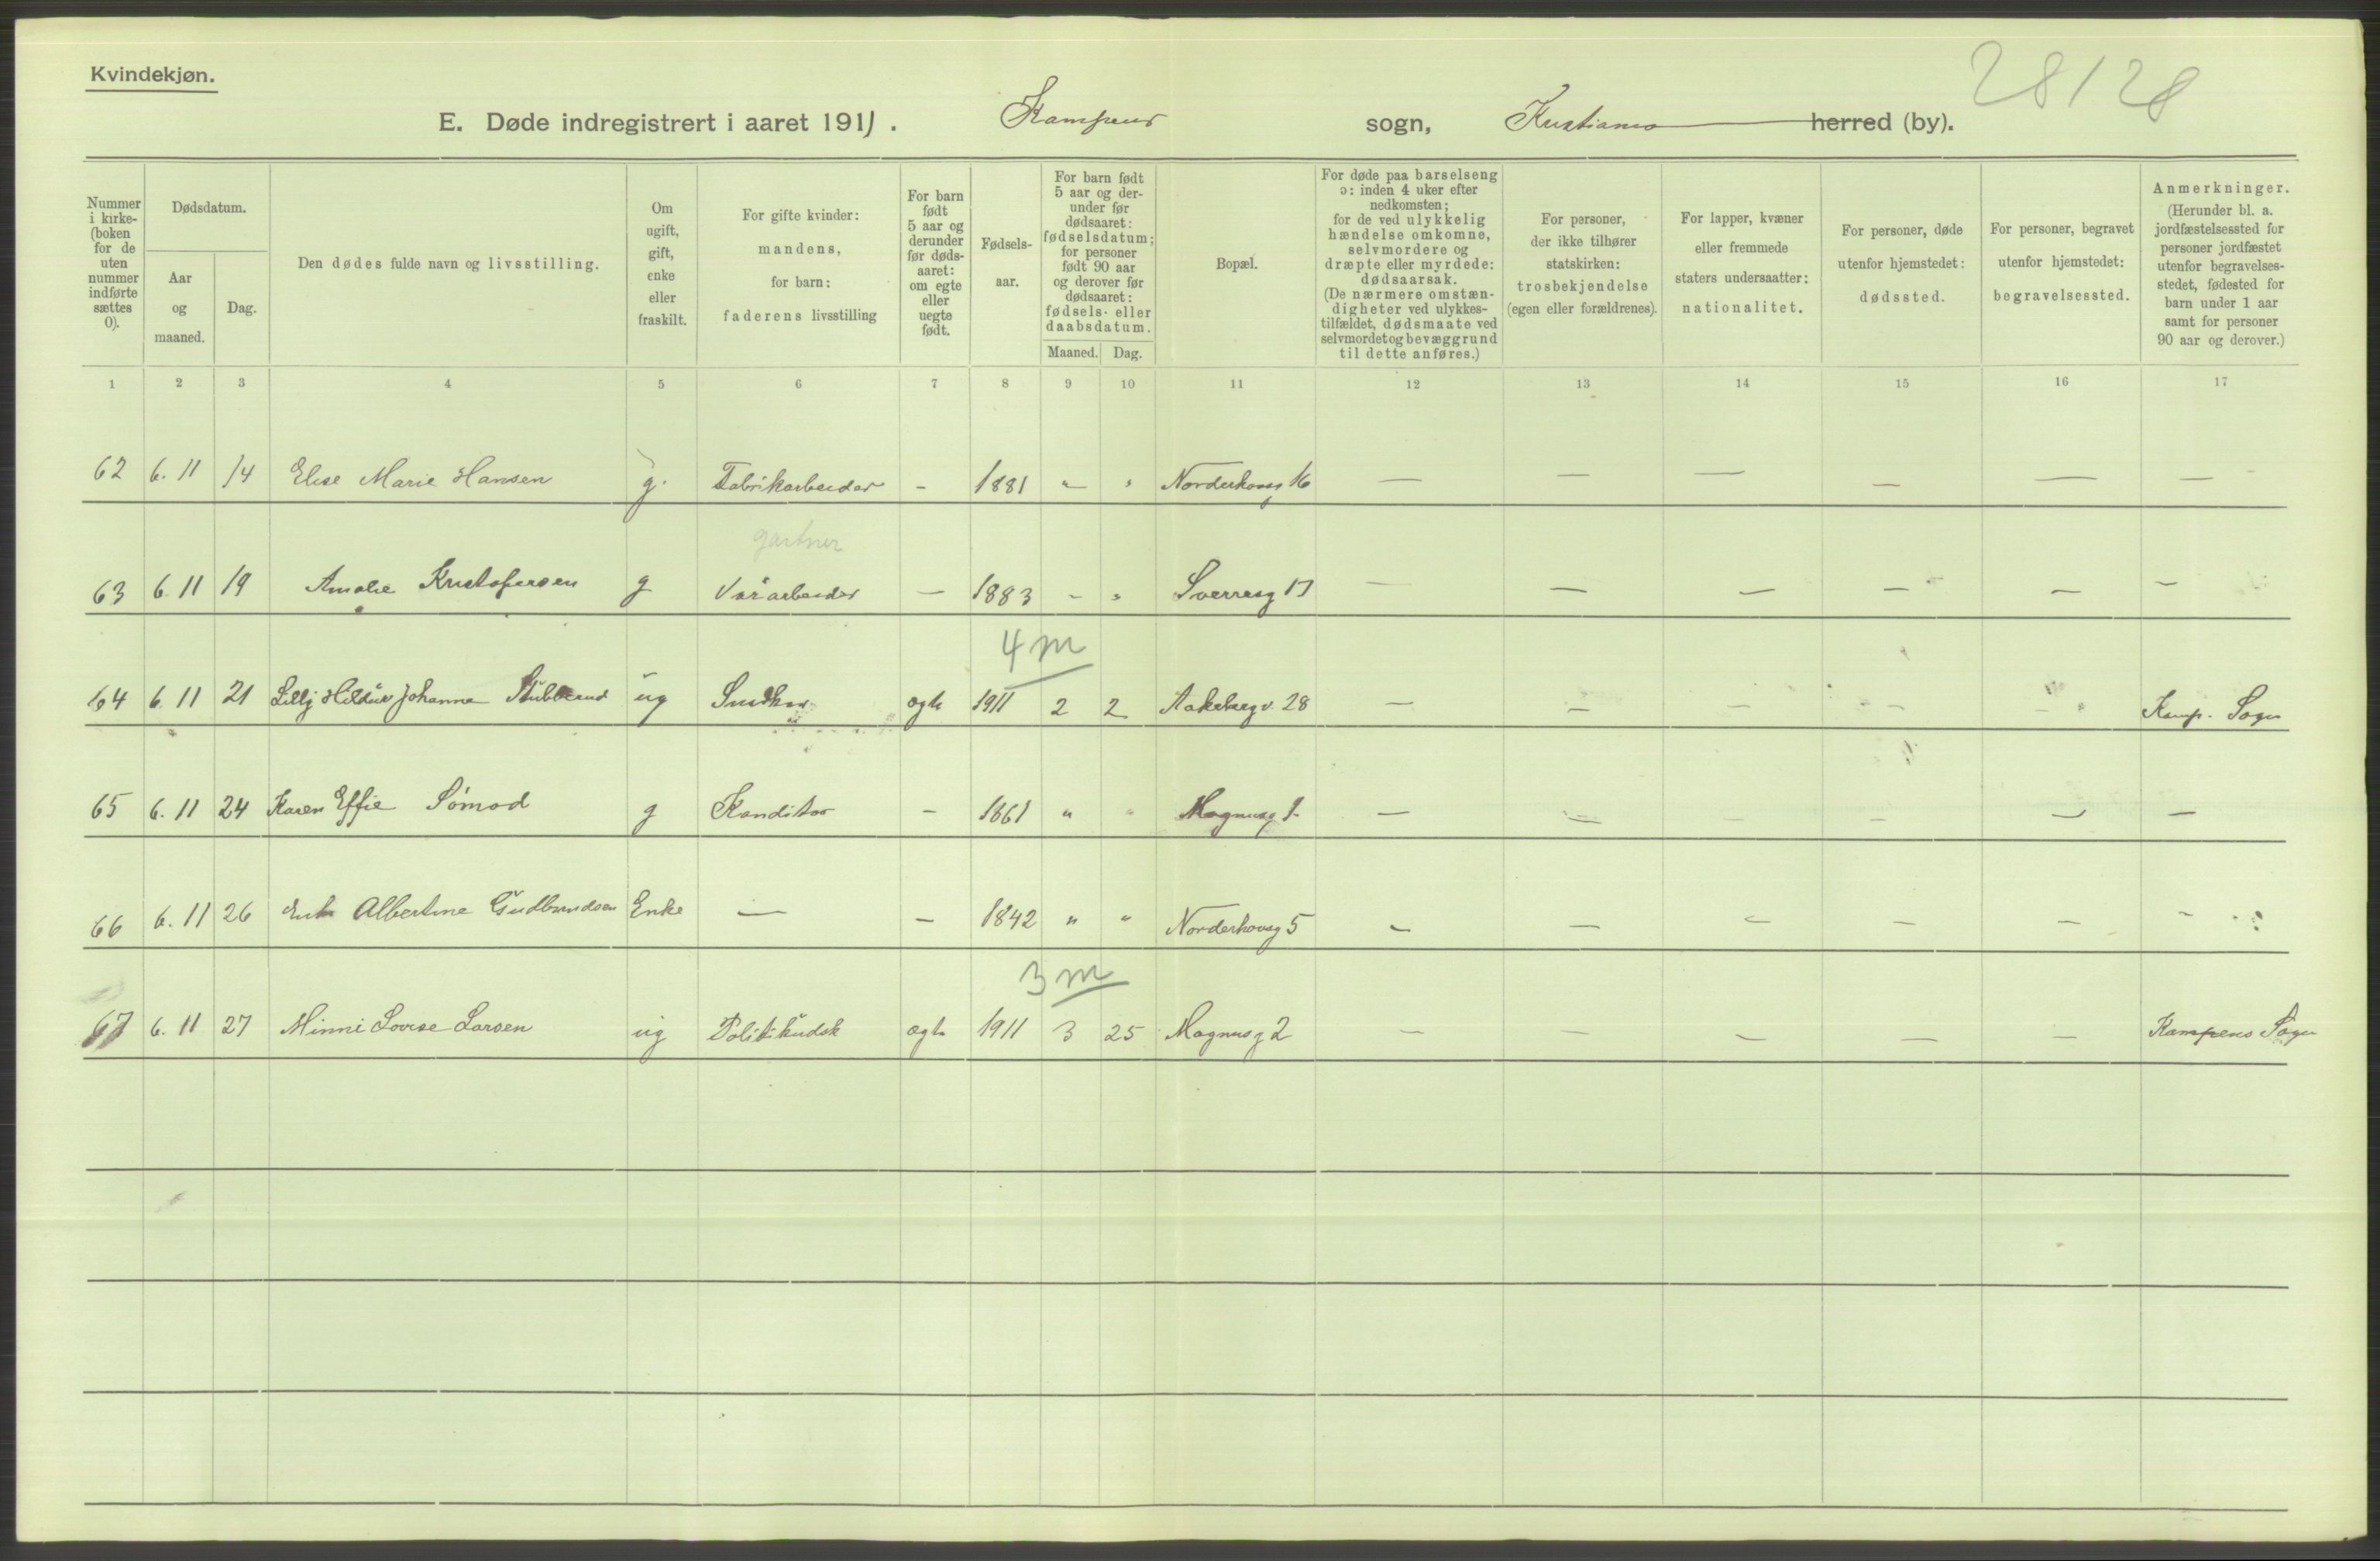 Kvindekjøn.
28128
E. Døde indregistrert i aaret 1911. Kampens sogn, Kristiania herred (by).
Nummer i kirke-(boken for de uten nummer indførte sættes 0).
Dødsdatum.
Aar og maaned.
Dag.
Den dødes fulde navn og livsstilling.
Om ugift, gift, enke eller fraskilt.
For gifte kvinder: mandens, for barn: faderens livsstilling
For barn født 5 aar og derunder før døds-aaret: om egte eller uegte født.
Fødsels-aar.
For barn født 5 aar og der-under før dødsaaret: fødselsdatum; for personer født 90 aar og derover før dødsaaret: fødsels- eller daabsdatum.
Maaned. Dag.
Bopæl.
For døde paa barselseng ɔ: inden 4 uker efter nedkomsten; for de ved ulykkelig hændelse omkomne, selvmordere og dræpte eller myrdede: dødsaarsak. (De nærmere omstæn-digheter ved ulykkes-tilfældet, dødsmaate ved selvmordet og bevæggrund til dette anføres.)
For personer, der ikke tilhører statskirken: trosbekjendelse (egen eller forældrenes).
For lapper, kvæner eller fremmede staters undersaatter: nationalitet.
For personer, døde utenfor hjemstedet: dødssted.
For personer, begravet utenfor hjemstedet: begravelsessted.
Anmerkninger. (Herunder bl. a. jordfæstelsessted for personer jordfæstet utenfor begravelses-stedet, fødested for barn under 1 aar samt for personer 90 aar og derover.)
1 2 3 4 5 6 7 8 9 10 11 12 13 14 15 16 17
62 6. 11 14 Elise Marie Hansen g. Fabrikarbeider - 1881 " " Norderhovsg 16 — — — — — —
gartner
63 6. 11 19 Amalie Kristofersen g — 1883 - " Sverresg 17 — — — — — —
4 m
64 6. 11 21 Lilly Hildur Johanne ug Snedker egte 1911 2 2 Aakebergv. 28 — — — — — Kamp. Sogn
65 6. 11 24 Karen Effie Sømod g Konditor - 1861 " " Magnusg 1 — — — — — —
66 6. 11 26 Albertine Gudbrandsen Enke — - 1842 " " Norderhovsg 5 — — — — — -
3 m
67 6. 11 27 Minni Lovise Larsen ug Politikudsk egte 1911 3 25 Magnusg 2 — — — — — Kampens Sogn